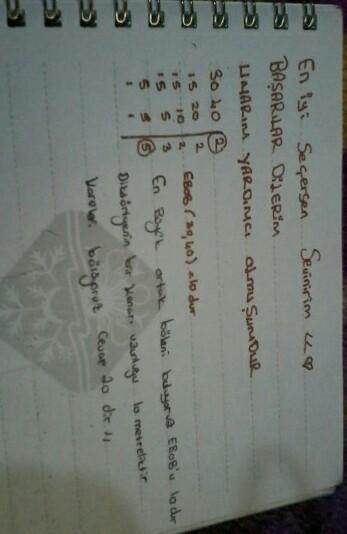 En iyi Seçersen Sevinirim << ♡
BAŞARILAR DİLERİM
UMARIM YARDIMCI OLMUŞUMDUR
30 40 | 2
15 20 | 2
15 10 | 2
15 5 | 3
5 5 | 5
1 1
EBOB (30,40) = 10 dur
En Büyük ortak böleni buluyoruz EBOB'u 10 dur
Dikdörtgenin bir kenarı uzunluğu 10 metredir
bölüyoruz Cevap 20 dir //